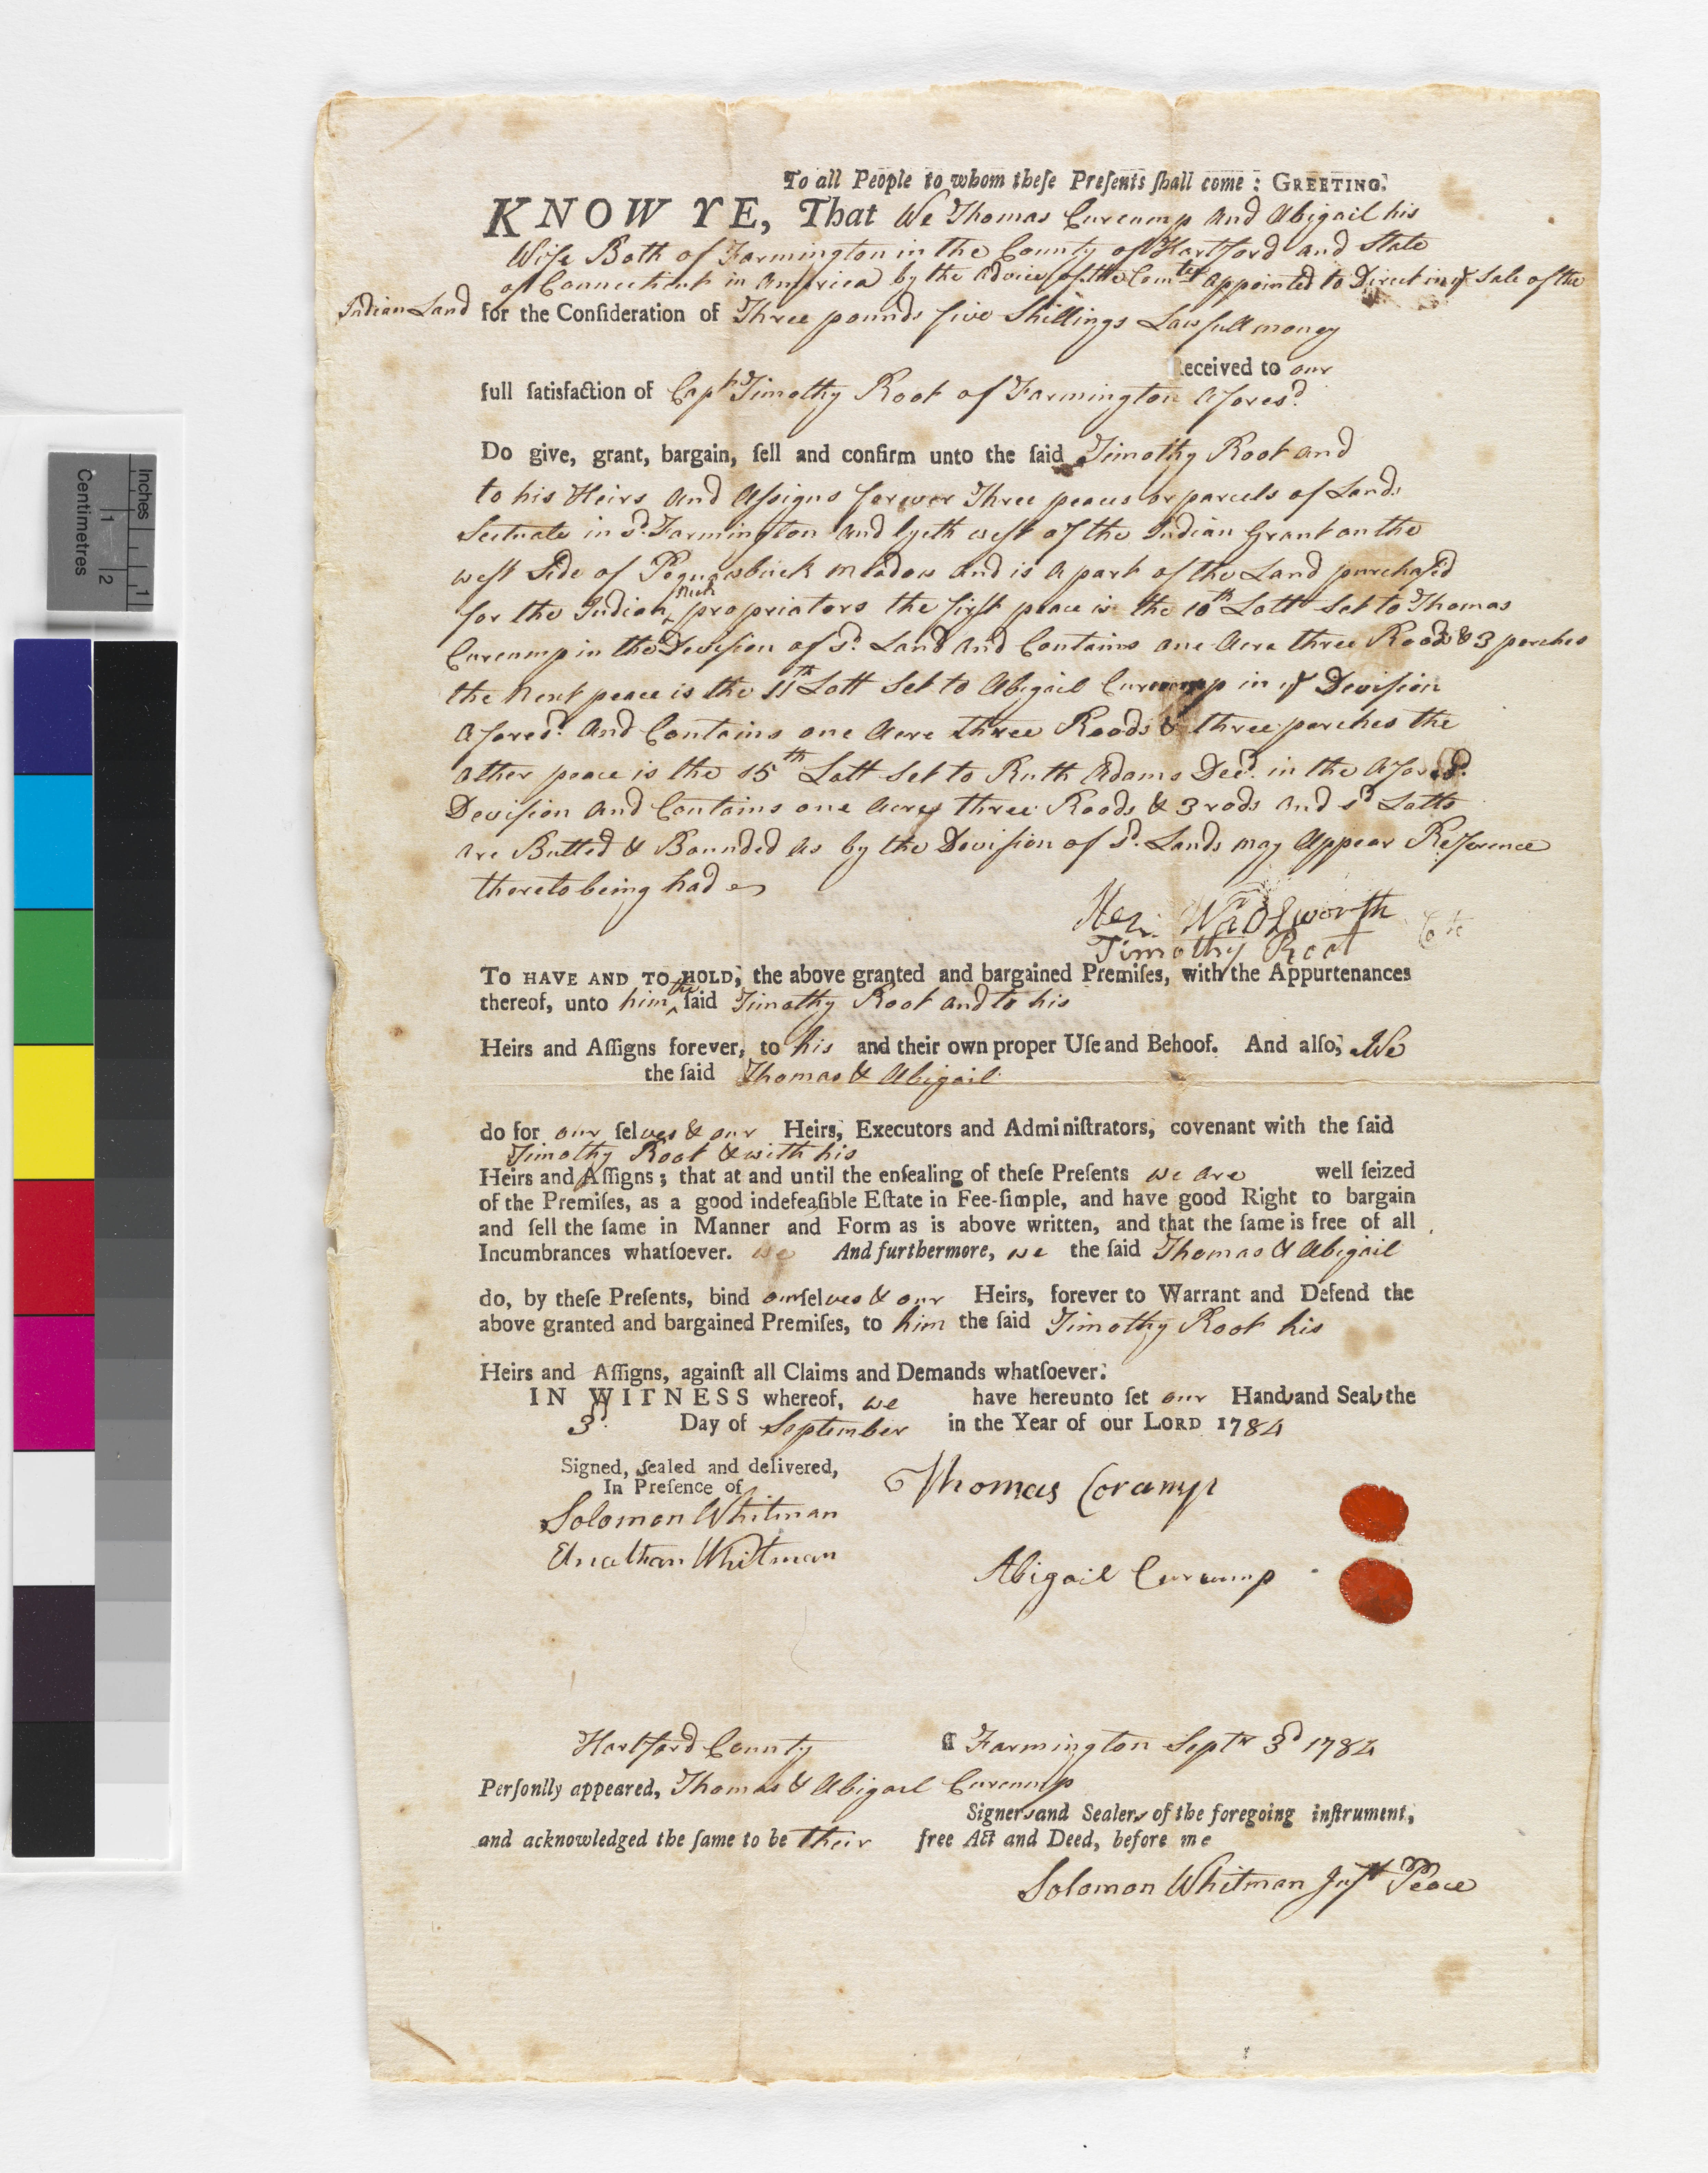 To all People to whom theſe Preſents ſhall come: GREETING.
KNOW YE, That We Thomas Curcump and Abigail his
Wife Both of Farmington in the County of Hartford and State
of Connecticut in America by the advice of the Comtee Appointed to Direct in ye Sale of the
Indian Land for the Conſideration of Three pounds five Shillings Lawfull money
Received to our
full ſatisfaction of Capt Timothy Root of Farmington Aforesd.
Do give, grant, bargain, ſell and confirm unto the ſaid Timothy Root and
to his Heirs and Aſsigns forever Three peaces or parcels of Lands
Scituate in sd. Farmington and lyeth west of the Indian Grant on the
west Side of Pequawbuck meadow and is a part of the Land purchaſed
for the Indian propriators the firſt peace is the 10th Lott Set to Thomas
Curcump in the Deviſion of sd. Land and Contains one Acre three Roods & 3 perches
the Next peace is the 11th Lott Set to Abigail Curcump in ye Deviſion
Aforesd. and Contains one Acre three Roods & three perches the
other peace is the 15th Lott Set to Ruth Adams Decd. in the Aforesd.
Deviſion and Contains one Acres three Roods & 3 rods and sd Lotts
are Butted & Bounded as by the Diviſion of sd. Lands may Appear Reference
thereto being had
Hez. Wadsworth
Timothy Root
TO HAVE AND TO HOLD, the above granted and bargained Premiſes, with the Appurtenances
thereof, unto him the ſaid Timothy Root and to his
Heirs and Aſſigns forever, to his and their own proper Uſe and Behoof. And alſo, We
the ſaid Thomas & Abigail
do for our ſelves & our Heirs, Executors and Adminiſtrators, covenant with the ſaid
Timothy Root & with his
Heirs and Aſſigns; that at and until the enſealing of theſe Preſents we are well ſeized
of the Premiſes, as a good indefeaſible Eſtate in Fee-ſimple, and have good Right to bargain
and ſell the ſame in Manner and Form as is above written, and that the ſame is free of all
Incumbrances whatſoever. we And furthermore, we the ſaid Thomas & Abigail
do, by theſe Preſents, bind ourſelves & our Heirs, forever to Warrant and Defend the
above granted and bargained Premiſes, to him the ſaid Timothy Root his
Heirs and Aſſigns, againſt all Claims and Demands whatſoever.
IN WITNESS whereof, we have hereunto ſet our Hands and Seals the
3d. Day of September in the Year of our LORD 1784
Signed, ſealed and delivered,
In Preſence of
Thomas Coramp
Solomon Whitman
Elnathan Whitman
Abigail Curcump
Hartford County Farmington Septr 3d 1784
Perſonlly appeared, Thomas & Abigail Curcump
Signers and Sealers of the foregoing inſtrument,
and acknowledged the ſame to be their free Act and Deed, before me
Solomon Whitman Just Peace
Inches
1
Centimetres
1
2